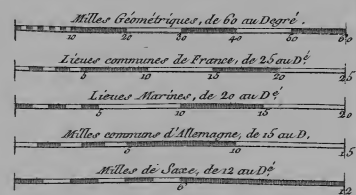 Milles Géométriques, de 60 au Degré.
10 20 30 40 50 60
Lieues communes de France, de 25 au Dé
5 10 15 20 25
Lieues Marines, de 20 au Dé
5 10 15 20
Milles communs d'Allemagne, de 15 au D.
5 10 15
Milles de Saxe, de 12 au Dé
6 12